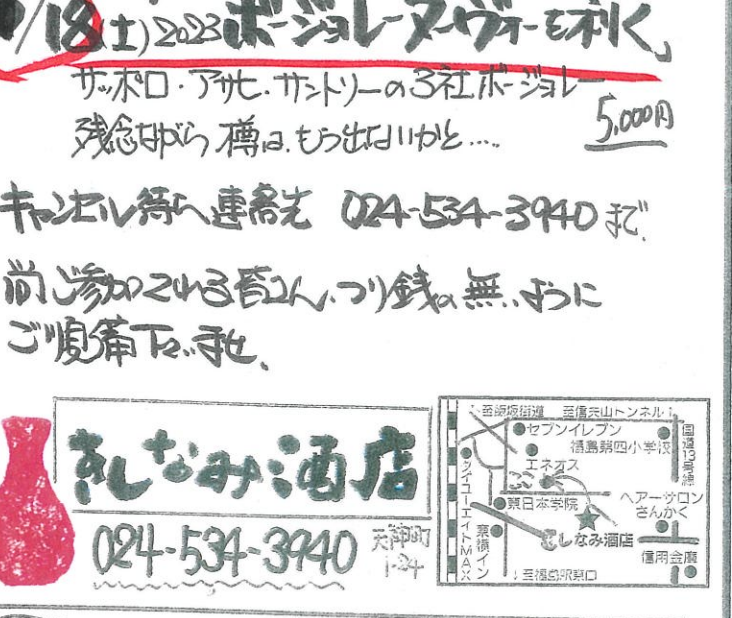 /18(土)2023ボージョレーヌーヴォーを利く」
サッポロ・アサヒ・サントリーの3社ボージョレー
残念ながら樽は、もう出ないかと....
5,000円
キャンセル待ち連絡先 024-534-3940まで
尚ご参加される皆さん、つり銭の無いように
ご準備下さいませ。
きしなみ酒店
024-534-3940
天神町
1-24
至飯坂街道 至信夫山トンネル
セブンイレブン
福島第四小学校
国道13号線
エネオス
ダイユーエイトMAX
東日本学院
ヘアーサロン
さんかく
東横イン
きしなみ酒店
信用金庫
↓至福島駅東口